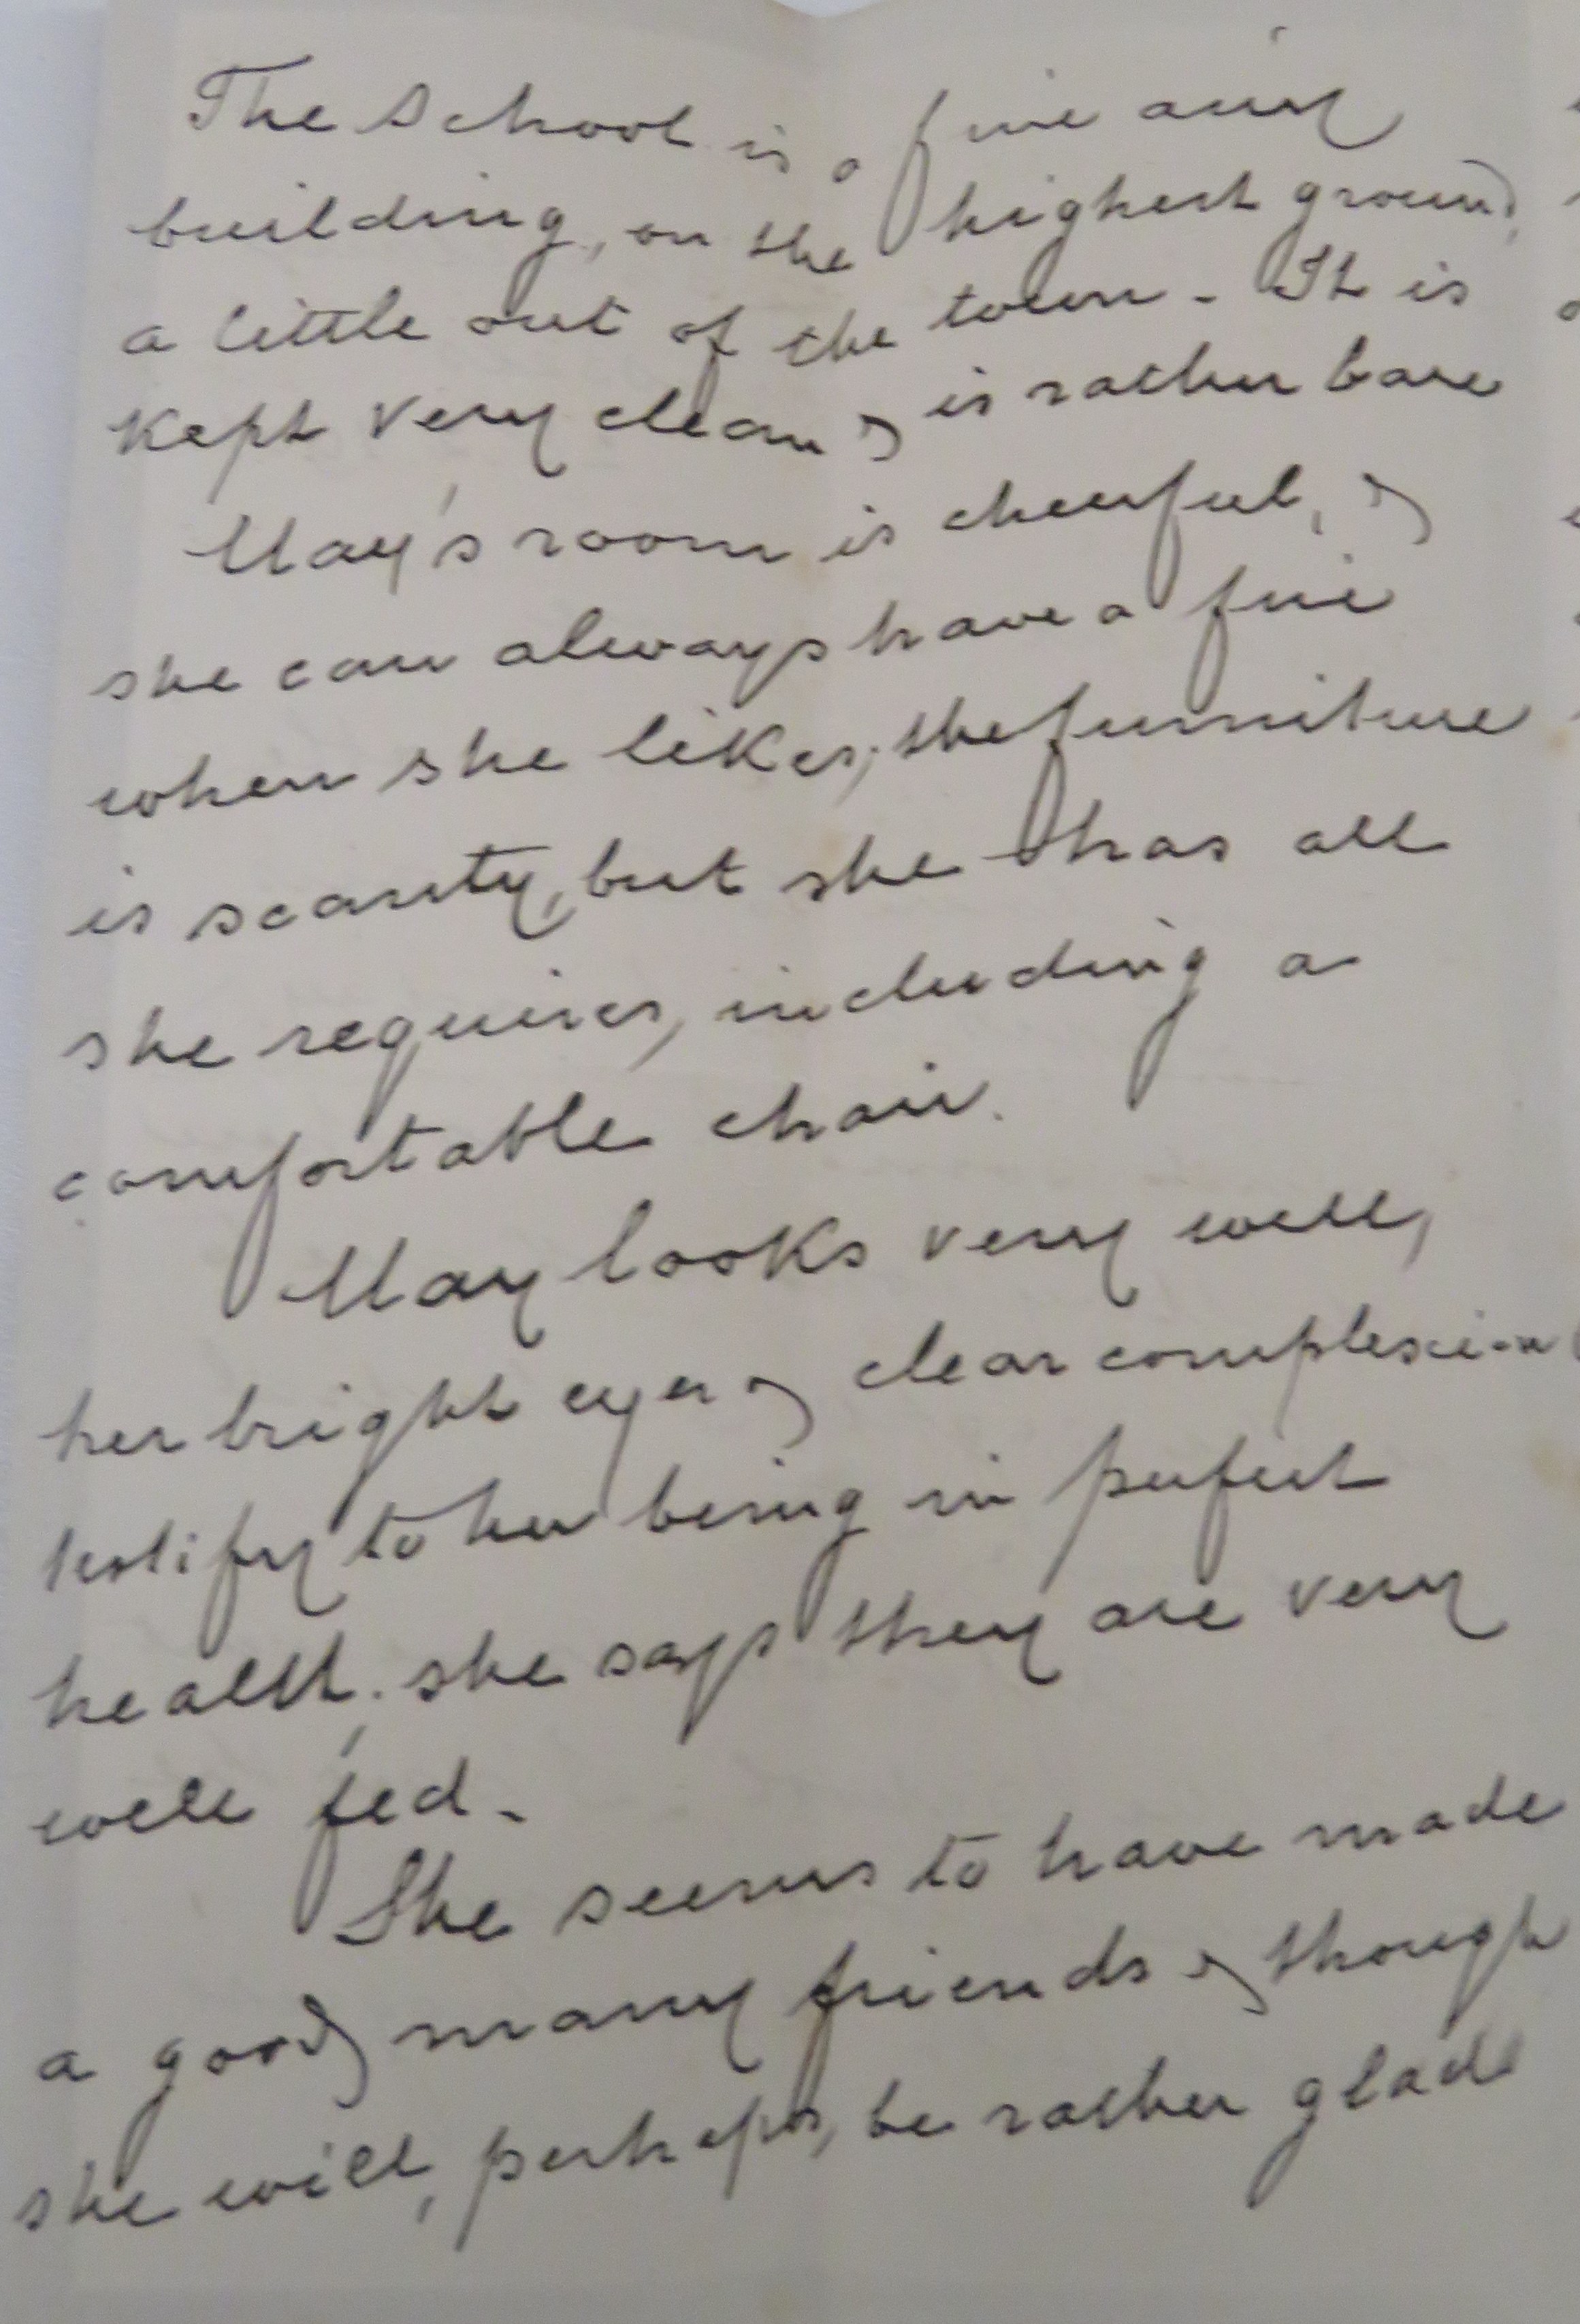 The School is a fine airy
building, on the highest ground,
a little out of the town - It is
kept very clean & is rather bare
May's room is cheerful, &
she can always have a fire
when she likes; the furniture
is scanty, but she has all
she requires, including a
comfortable chair.
May looks very well,
her bright eyes & clear complexion
testify to her being in perfect
health. she says they are very
well fed -
She seems to have made
a good many friends & though
she will, perhaps, be rather glad